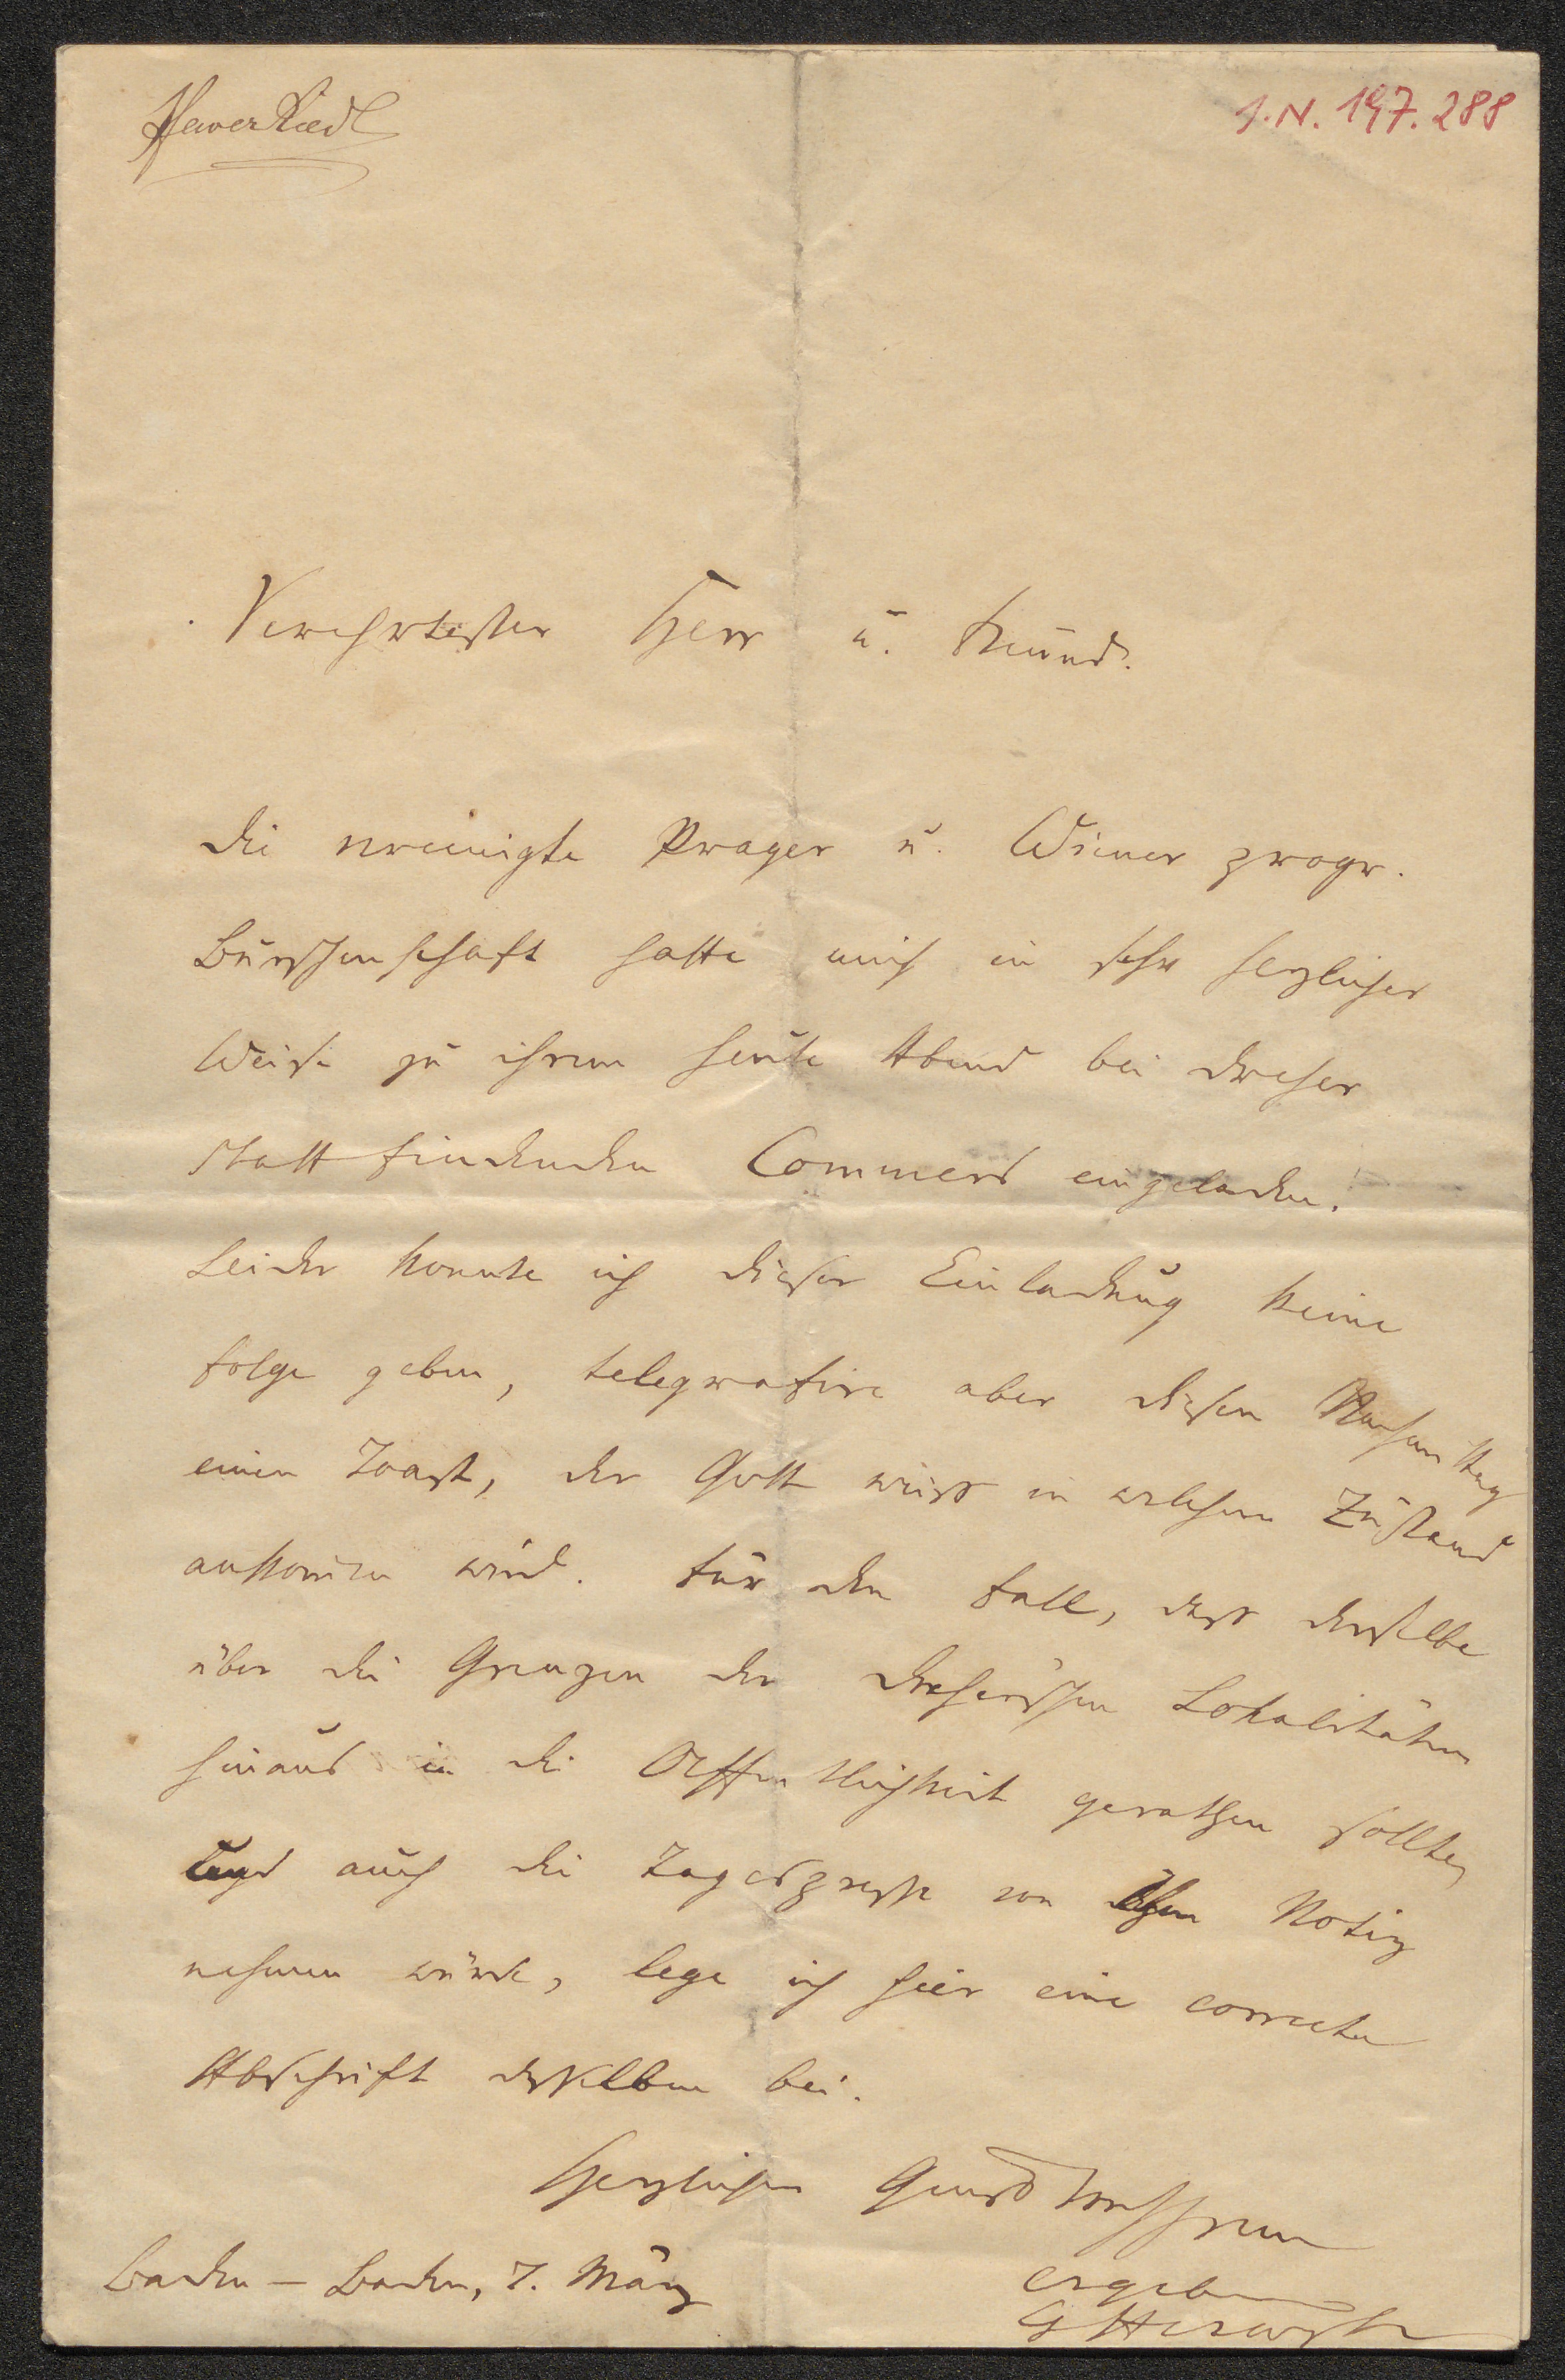 Xaver Riedl
I.N. 197.288
Verehrtester Herr u. Freund.
Die vereinigte Prager u. Wiener progr.
Burschenschaft hatte mich in sehr herzlicher
Weise zu ihrem heute Abend bei Dreher
stattfindenden Commers eingeladen.
Leider konnte ich dieser Einladung keine
Folge geben, telegrafire aber diesen Nachmittag
einen Toast, der Gott weiss in welchem Zustand
ankommen wird. Für den Fall, dass derselbe
über die Grenzen der Dreherischen Lokalitäten
hinaus in die Oeffentlichkeit gerathen sollte,
und auch die Tagespresse von ihm Notiz
nehmen würde, lege ich hier eine correcte
Abschrift desselben bei.
Herzlichen Gruss
ergeben
Baden-Baden, 7. März
GHerwegh